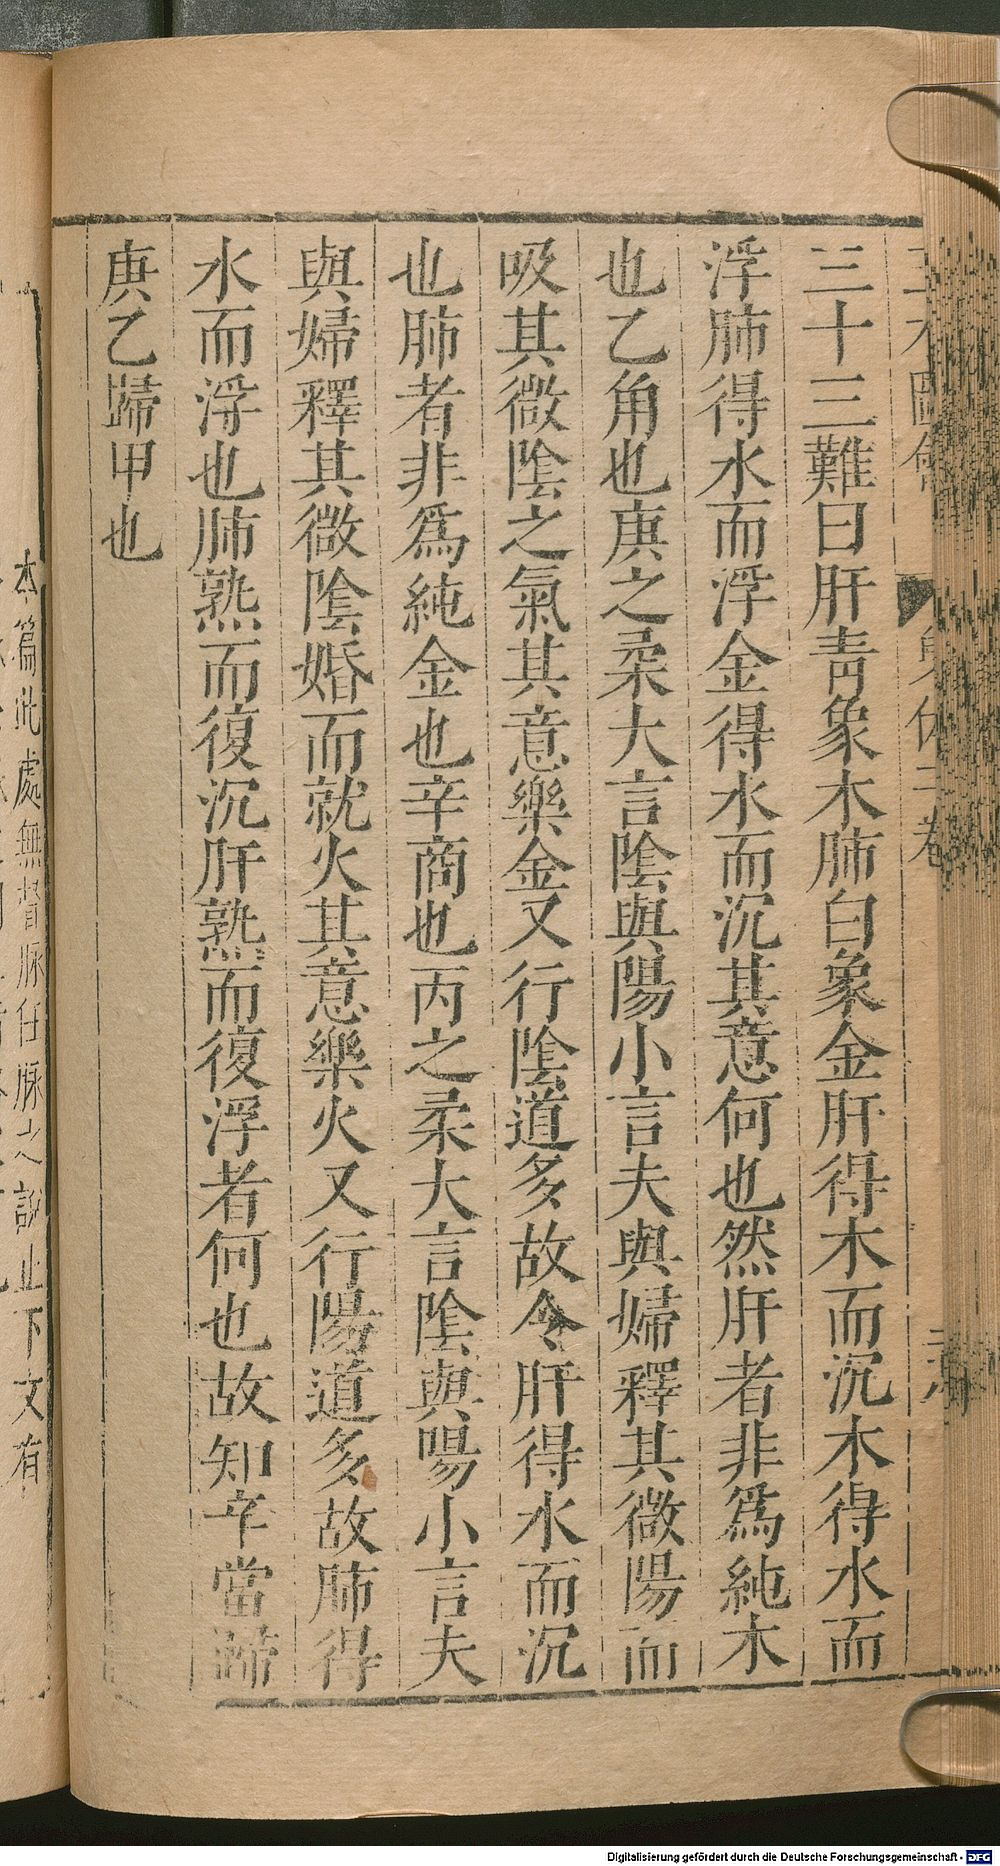 三十三難曰肝青象木肺白象金肝得木而沉木得水而
浮肺得水而浮金得水而沉其意何也然肝者非爲純木
也乙角也庚之柔大言陰與陽小言夫與婦釋其微陽而
吸其微陰之氣其意樂金又行陰道多故令肝得水而沉
也肺者非爲純金也辛商也丙之柔大言陰與陽小言夫
與婦釋其微陰婚而就火其意樂火又行陽道多故肺得
水而浮也肺熟而復沉肝熟而復浮者何也故知辛當歸
庚乙歸甲也
本篇此處無督脉任脉之說止下文有
Digitalisierung gefördert durch die Deutsche Forschungsgemeinschaft - DFG